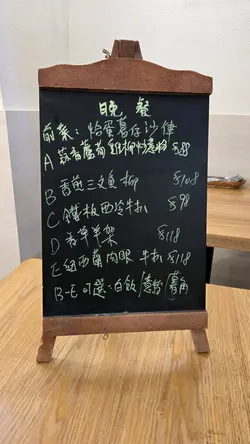 晚餐
前菜：烚蛋薯仔沙律
A 蒜香蘆筍雞柳炒意粉 $88
B 香煎三文魚柳 $108
C 鐵板西冷牛扒 $98
D 香草羊架 $118
E 紐西蘭肉眼牛扒 $118
B-E 可選：白飯/意粉/薯角